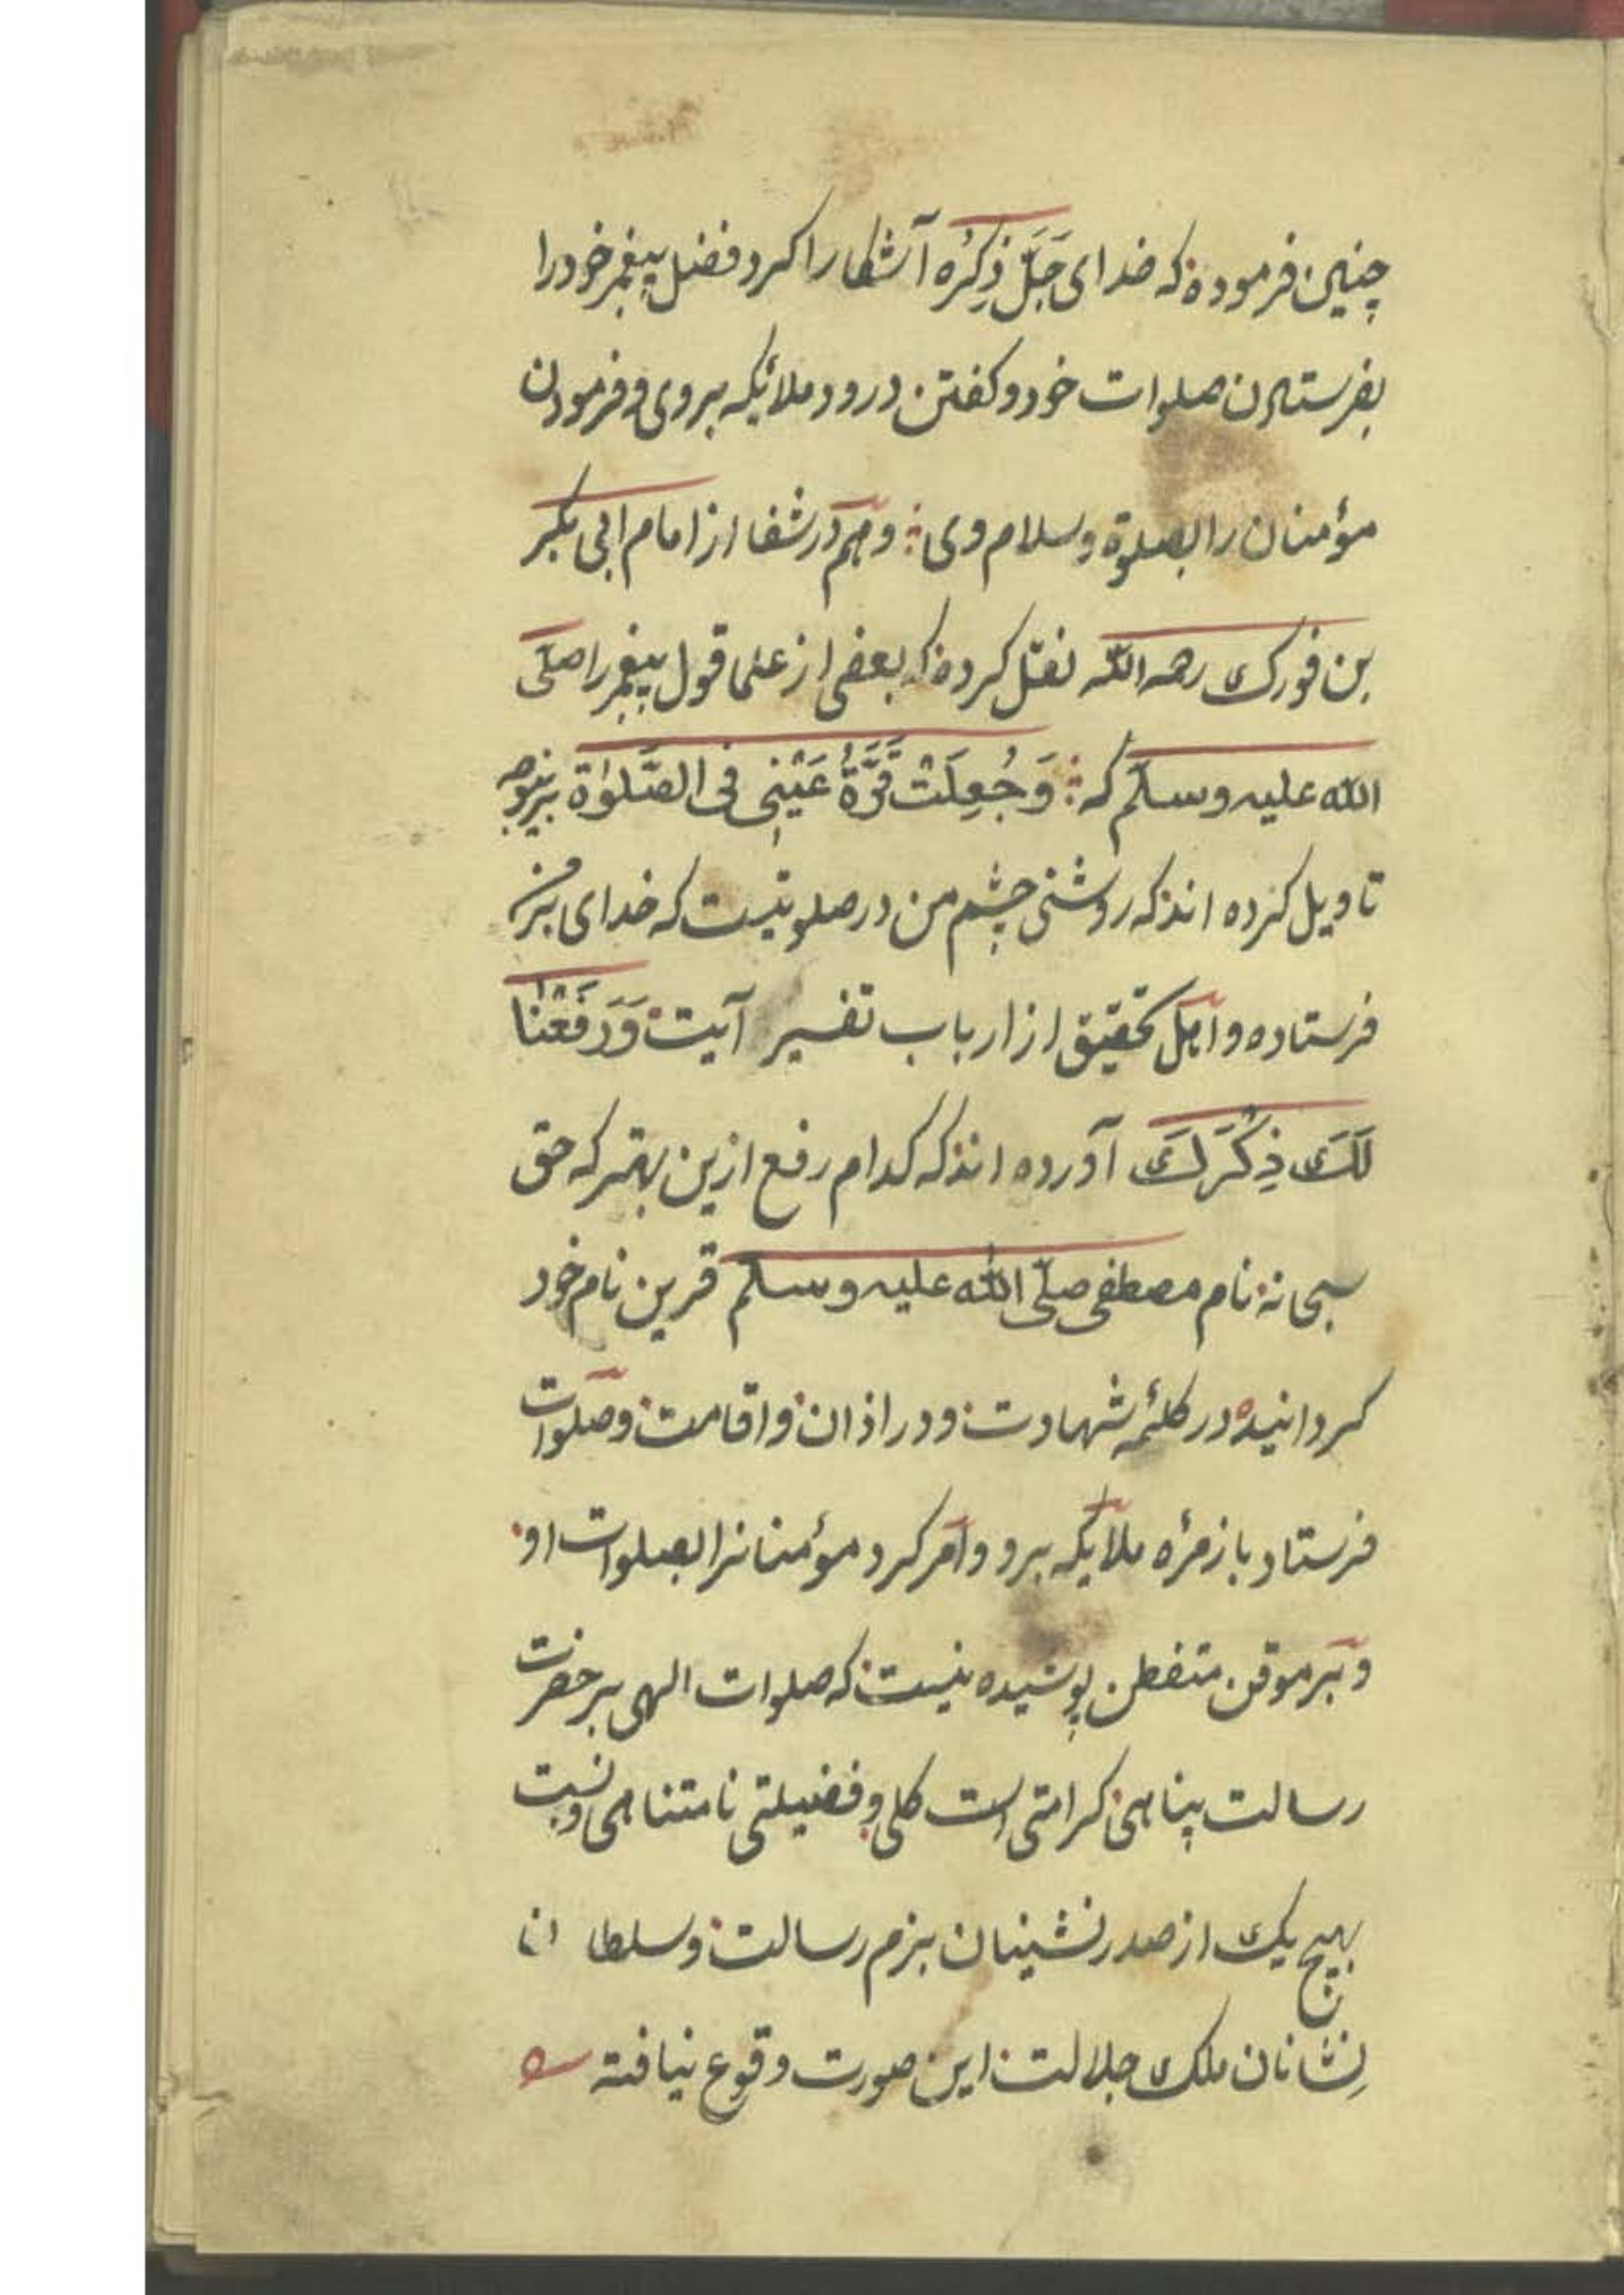 چنین فرموده که خدای جَلَّ ذِکْرُه آشکارا کرد فضل پیغمبر خود را
بفرستادن صلوات خود و کفتن درود ملائیکه بروی و فرمودن
مؤمنان را بصلوة و سلام وی و هم در شفا از امام ابی بکر
بن فورک رحمه الله نقل کرده که بعضی از علما قول پیغمبر را صلی
الله علیه وسلم که وَجُعِلَتْ قُرَّةُ عَیْنِی فی الصَّلوٰة برینوجه
تاویل کرده اند که روشنی چشم من در صلوتیست که خدای بر من
فرستاده و اهل تحقیق از ارباب تفسیر آیت وَرَفَعْنَا
لَکَ ذِکْرَکَ آورده اند که کدام رفع ازین بهتر که حق
سبحانه نام مصطفی صلی الله علیه وسلم قرین نام خود
کردانیده در کلمهٔ شهادت و در اذان و اقامت و صلوات
فرستاد با زمرهٔ ملایکه برو و امر کرد مؤمنانرا بصلوات او
و بر موقن متفطن پوشیده نیست که صلوات الهی بر حضرت
رسالت پناهی کرامتی است کلی و فضیلتی نامتناهی و نسبت
بهیچ یک از صدر نشینان بزم رسالت و سلطا ن ا
نشانان ملک جلالت این صورت وقوع نیافته